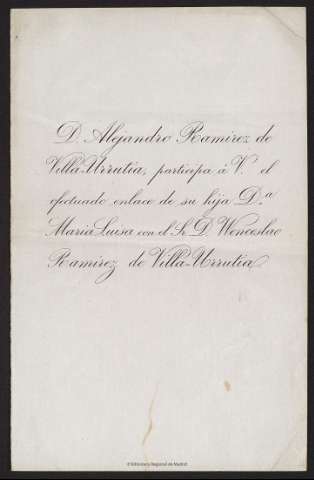 D. Alejandro Ramirez de
Villa-Urrutia, participa á V. el
efectuado enlace de su hija D.ª
Maria Luisa con el Sr. D. Wenceslao
Ramirez de Villa-Urrutia.
© Biblioteca Regional de Madrid